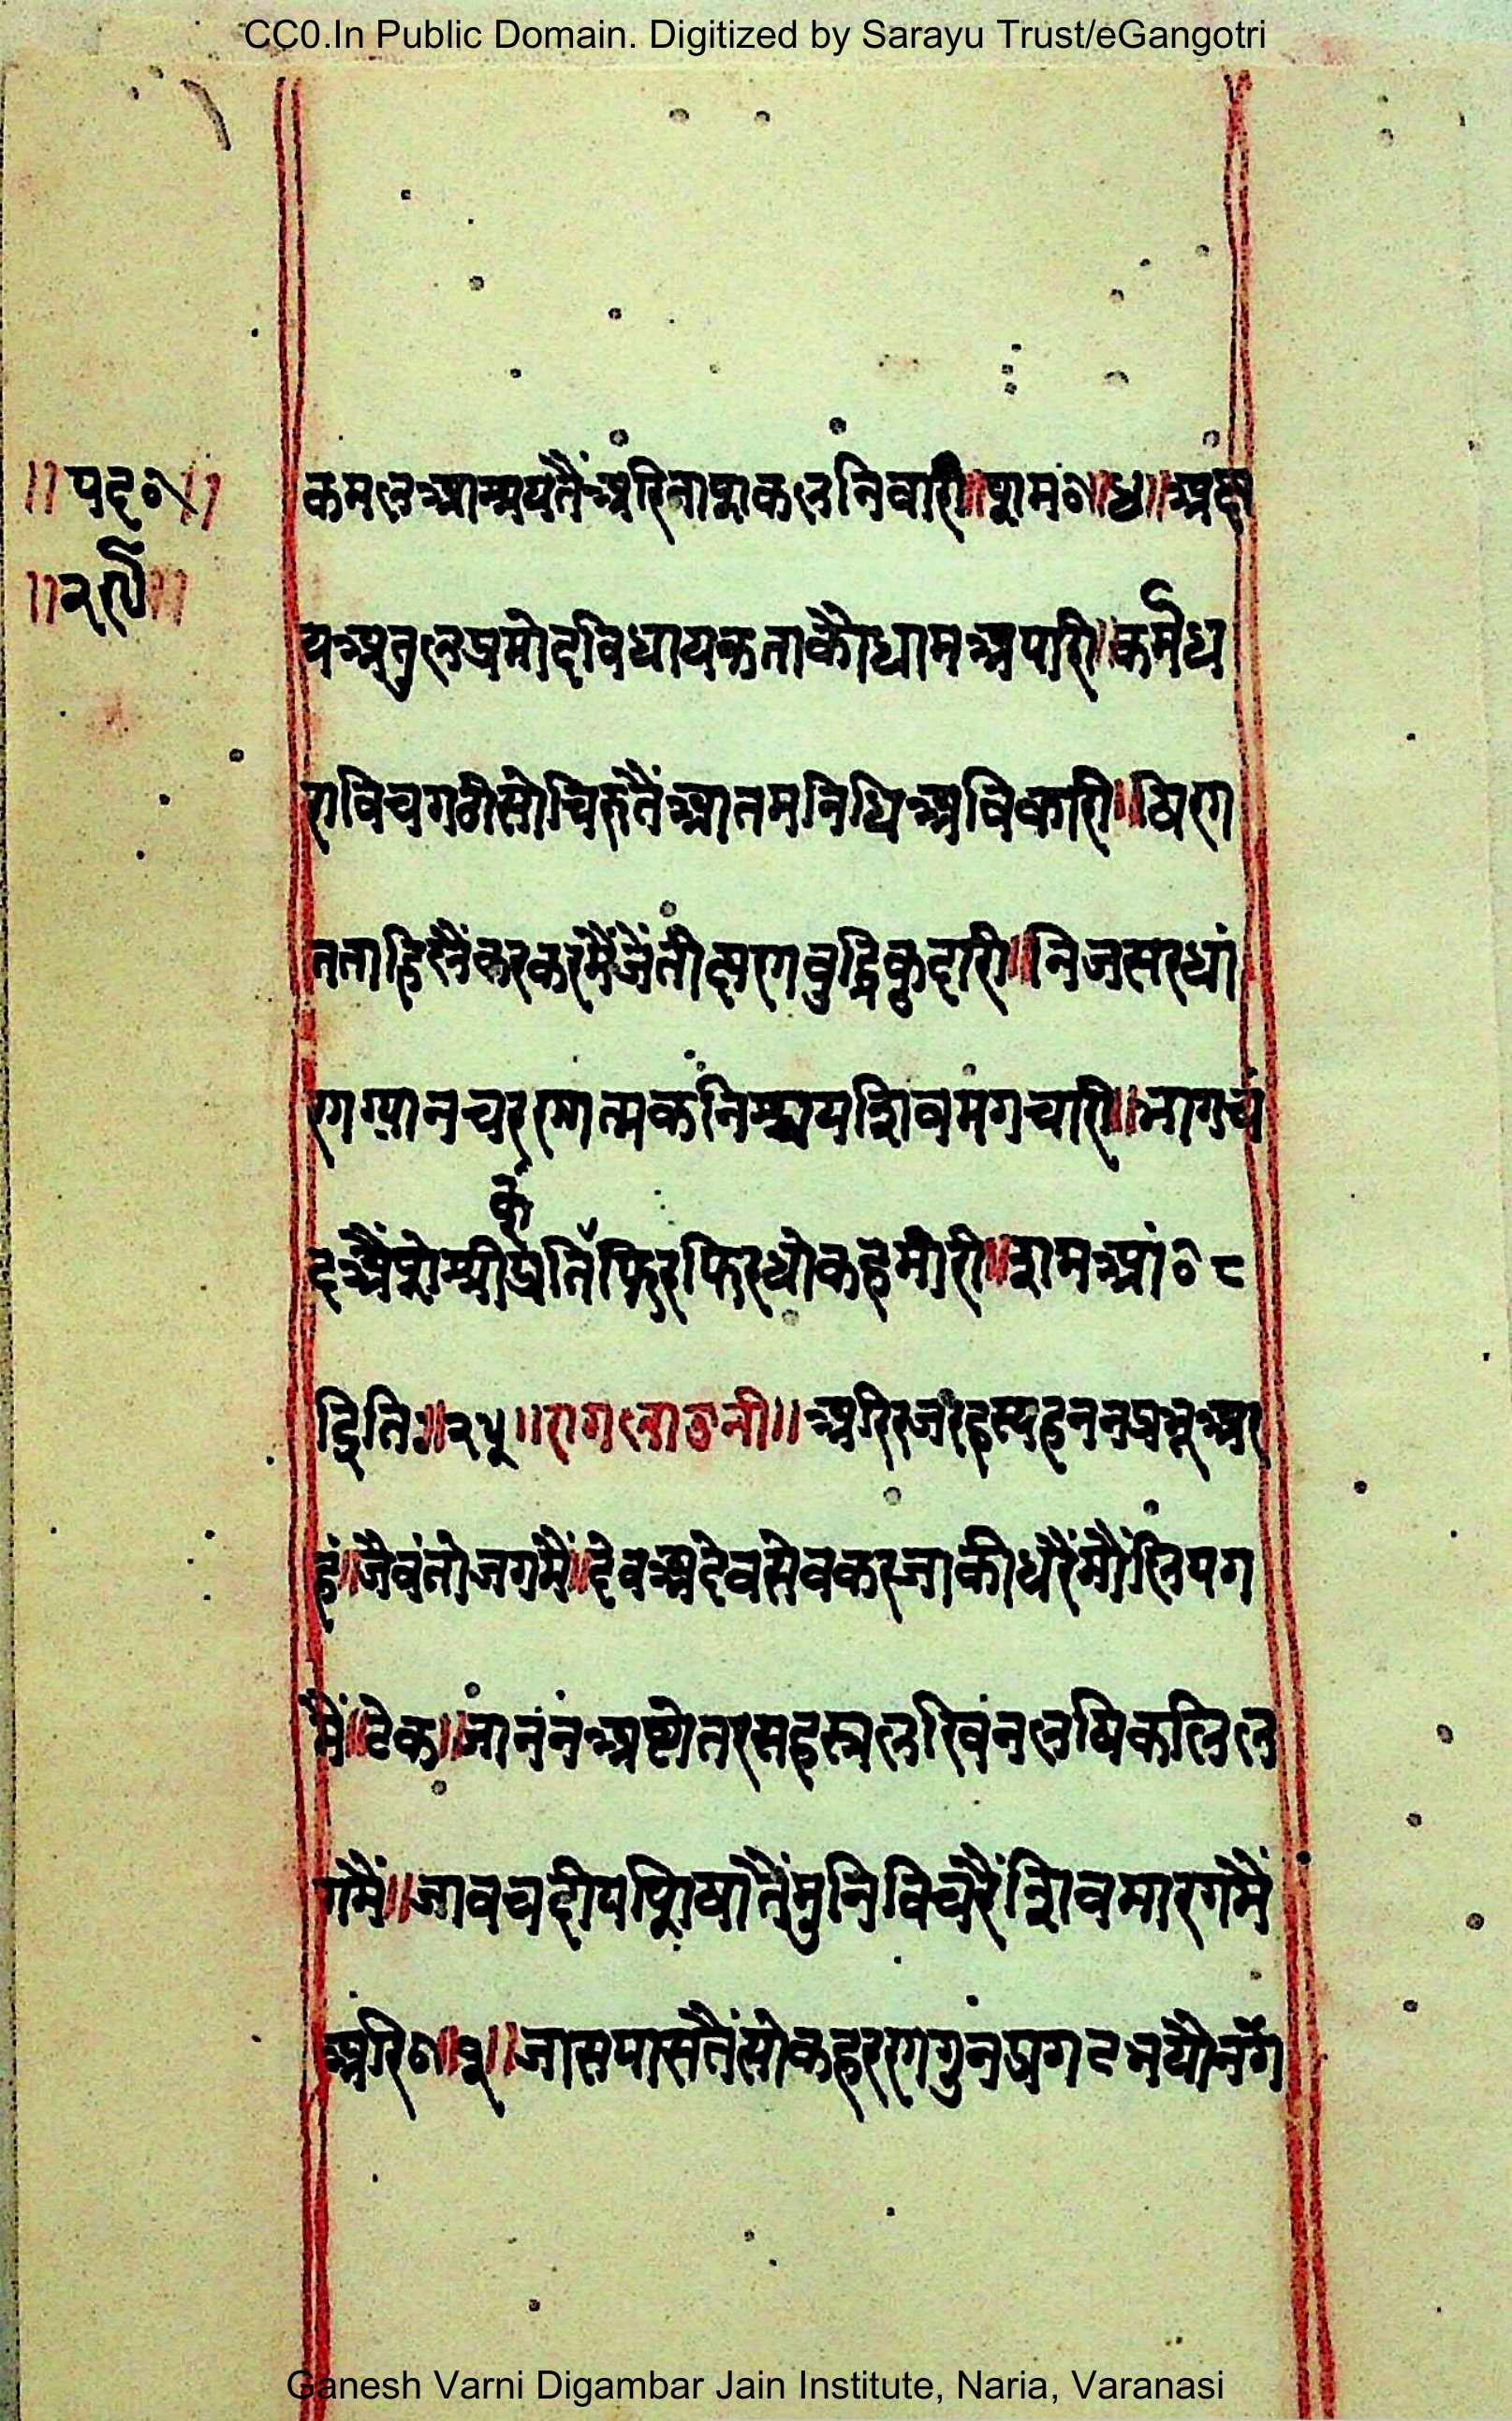 CC0.In Public Domain. Digitized by Sarayu Trust/eGangotri
॥पद०॥ कमलआम्नायतैं अरिनाशकलनिवारी॥शम०॥४॥अक्ष
॥२५॥
यअतुलप्रमोदविधायकताकौधामअपारी॥कर्मध
राविचगढीसोचिरुतैंआतमनिधिअविकारी॥षिरग
नताहिलैंकरकरमैंजेंतीक्षरगबुद्धिकुदारी॥निजसरधां
रगग्यानचररणात्मकनिश्चयशिवमगचारी॥भागचं
दअैसेश्रीप्रतिफिरफिरधोकहमारी॥शमआं०८
द्विति॥२५॥रागलावनी॥अरिरजरहस्यहननप्रभूअर
हं॥जैवंतोजगमैं॥देवअदेवसेवकरजाकीधरैंमौलिपग
मैं॥टेक॥जानंनअष्टोतरसहस्रलरिवंनलषिकलिल
गमैं॥जावचदीपशिषातैंमुनिविचरैंशिवमारगमैं
अरि०॥१॥जासपासतैंसोकहररगगुनप्रगटभयोनग
Ganesh Varni Digambar Jain Institute, Naria, Varanasi